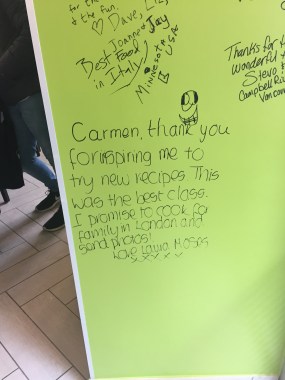 & the fun.
♡ Dave, Liz,
Joanne & Jay
Best Food
in Italy!
Minnesota
USA
Thanks for
wonderful
Stevo
Campbell River
Vancou
Carmen, thank you
for inspiring me to
try new recipes This
was the best class.
I promise to cook for
family in London and
send photos!
Love Laura Moses
xxxxx